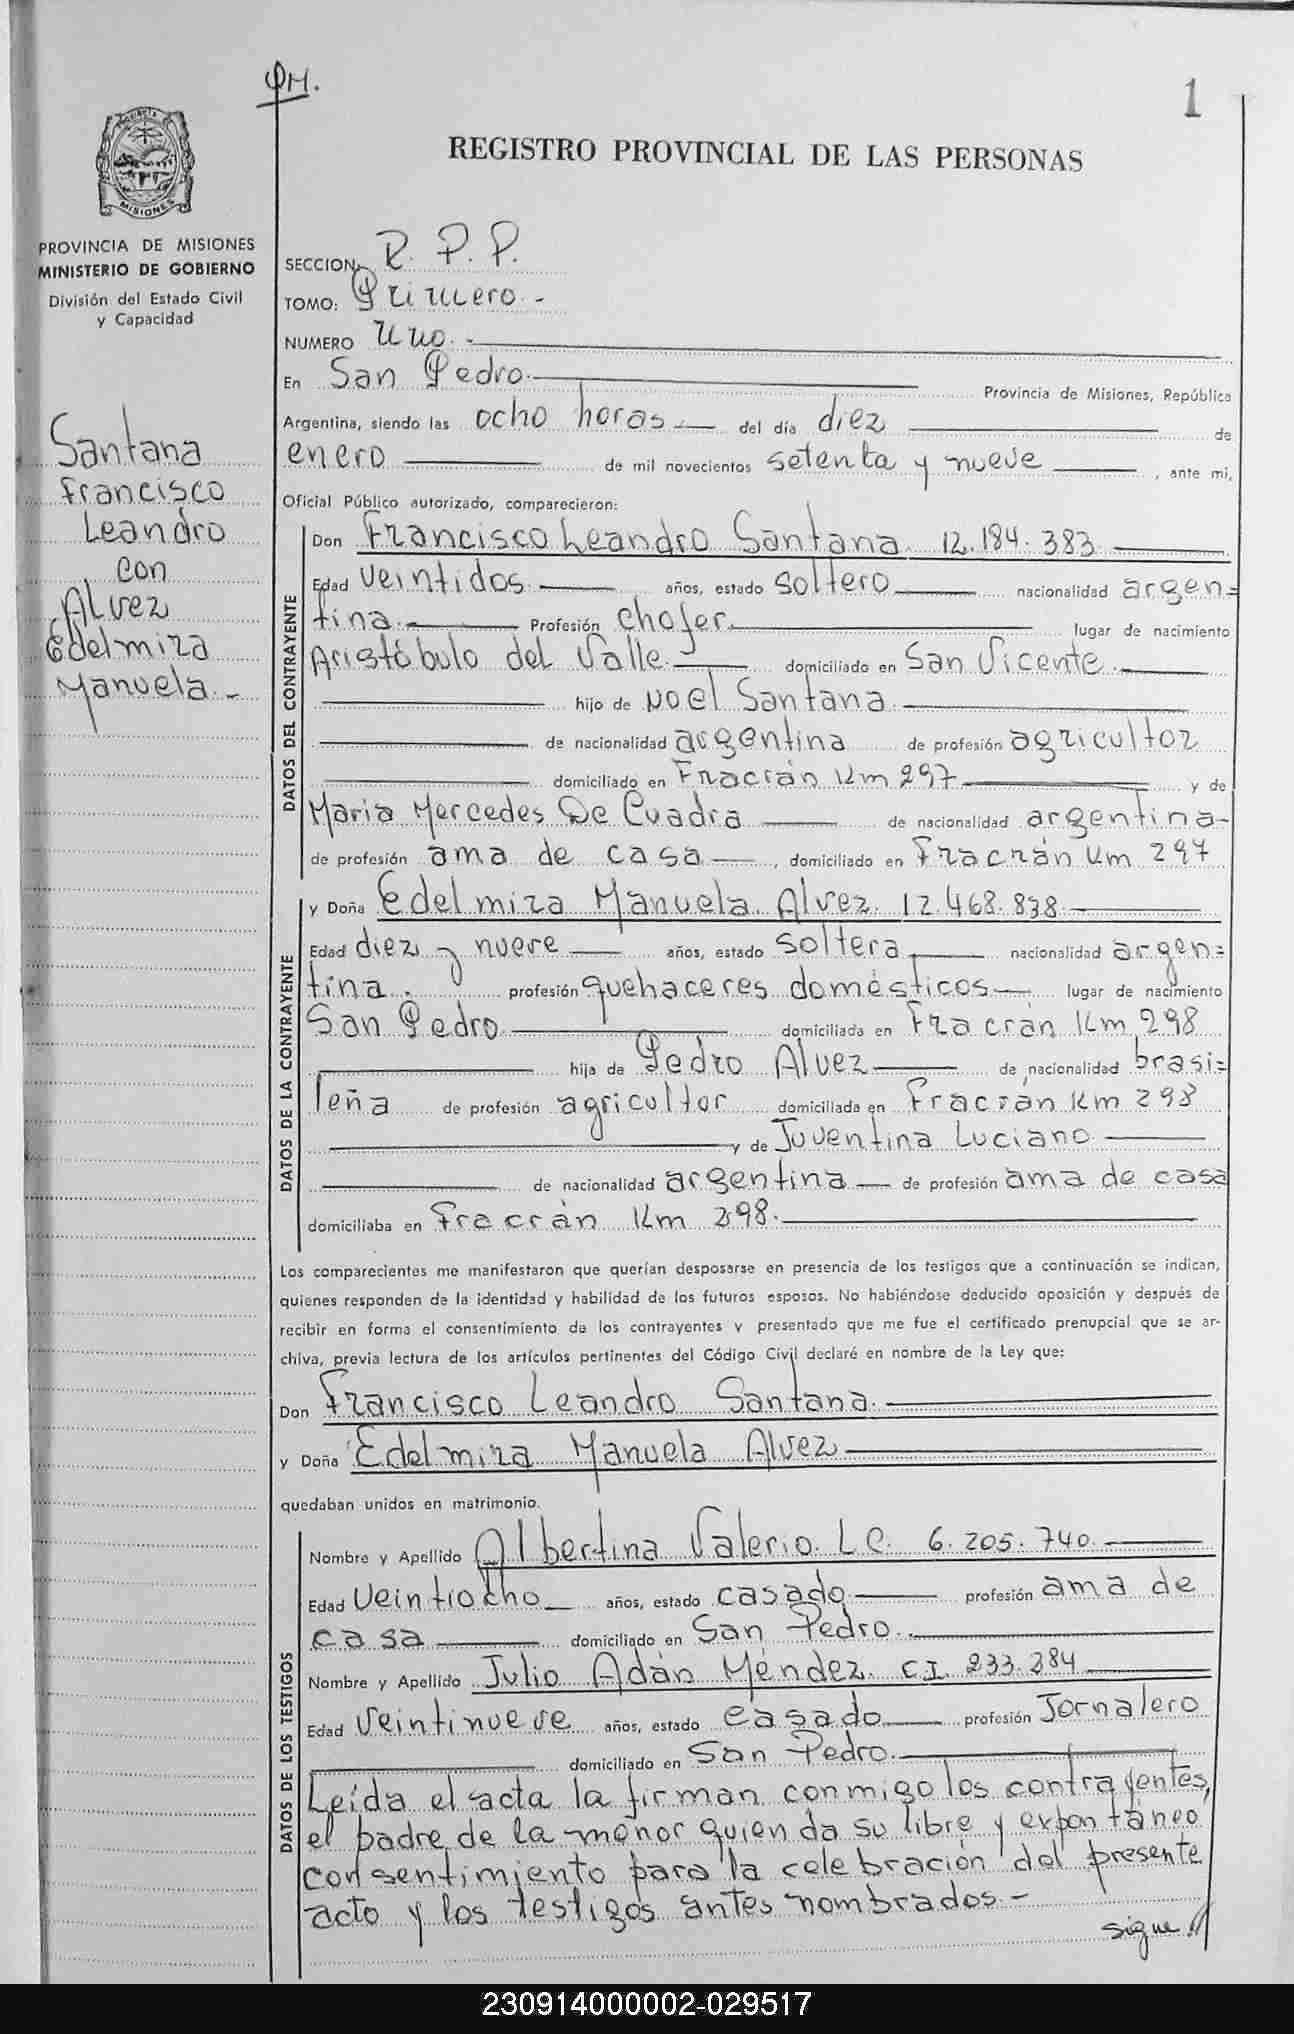 QM.
1
REGISTRO PROVINCIAL DE LAS PERSONAS
MISIONES
PROVINCIA DE MISIONES
MINISTERIO DE GOBIERNO
División del Estado Civil
y Capacidad
SECCION: R. P. P.
TOMO: Primero.-
NUMERO Uno.-
En San Pedro. Provincia de Misiones, República
Argentina, siendo las ocho horas.- del día diez de
enero de mil novecientos setenta y nueve, ante mi,
Oficial Público autorizado, comparecieron:
Santana
Francisco
Leandro
con
Alvez
Edelmira
Manuela.-
DATOS DEL CONTRAYENTE
Don Francisco Leandro Santana 12.184.383
Edad veintidos. años, estado soltero nacionalidad argen=
tina. Profesión chofer. lugar de nacimiento
Aristóbulo del Valle. domiciliado en San Vicente.
hijo de Noel Santana
de nacionalidad argentina de profesión agricultor
domiciliado en Fracrán Km 297 y de
Maria Mercedes De Cuadra de nacionalidad argentina-
de profesión ama de casa, domiciliado en Fracrán Km 297
DATOS DE LA CONTRAYENTE
y Doña Edelmira Manuela Alvez. 12.468.838.
Edad diez y nueve años, estado soltera nacionalidad argen=
tina. profesión quehaceres domésticos- lugar de nacimiento
San Pedro domiciliada en Fracrán Km 298
hija de Pedro Alvez de nacionalidad brasi=
leña de profesión agricultor domiciliada en Fracrán Km 298
y de Juventina Luciano
de nacionalidad argentina de profesión ama de casa
domiciliaba en Fracrán Km 298.
Los comparecientes me manifestaron que querían desposarse en presencia de los testigos que a continuación se indican,
quienes responden de la identidad y habilidad de los futuros esposos. No habiéndose deducido oposición y después de
recibir en forma el consentimiento de los contrayentes y presentado que me fue el certificado prenupcial que se ar-
chiva, previa lectura de los artículos pertinentes del Código Civil declaré en nombre de la Ley que:
Don Francisco Leandro Santana.
y Doña Edelmira Manuela Alvez
quedaban unidos en matrimonio.
DATOS DE LOS TESTIGOS
Nombre y Apellido Albertina Valerio. L.C. 6.205.740.
Edad veintiocho años, estado casado profesión ama de
casa domiciliado en San Pedro.
Nombre y Apellido Julio Adán Méndez. C.I. 233.284
Edad veintinueve años, estado casado profesión Jornalero
domiciliado en San Pedro.
Leída el acta la firman conmigo los contrayentes,
el padre de la menor quien da su libre y expontáneo
consentimiento para la celebración del presente
acto y los testigos antes nombrados.-
sigue //
230914000002-029517